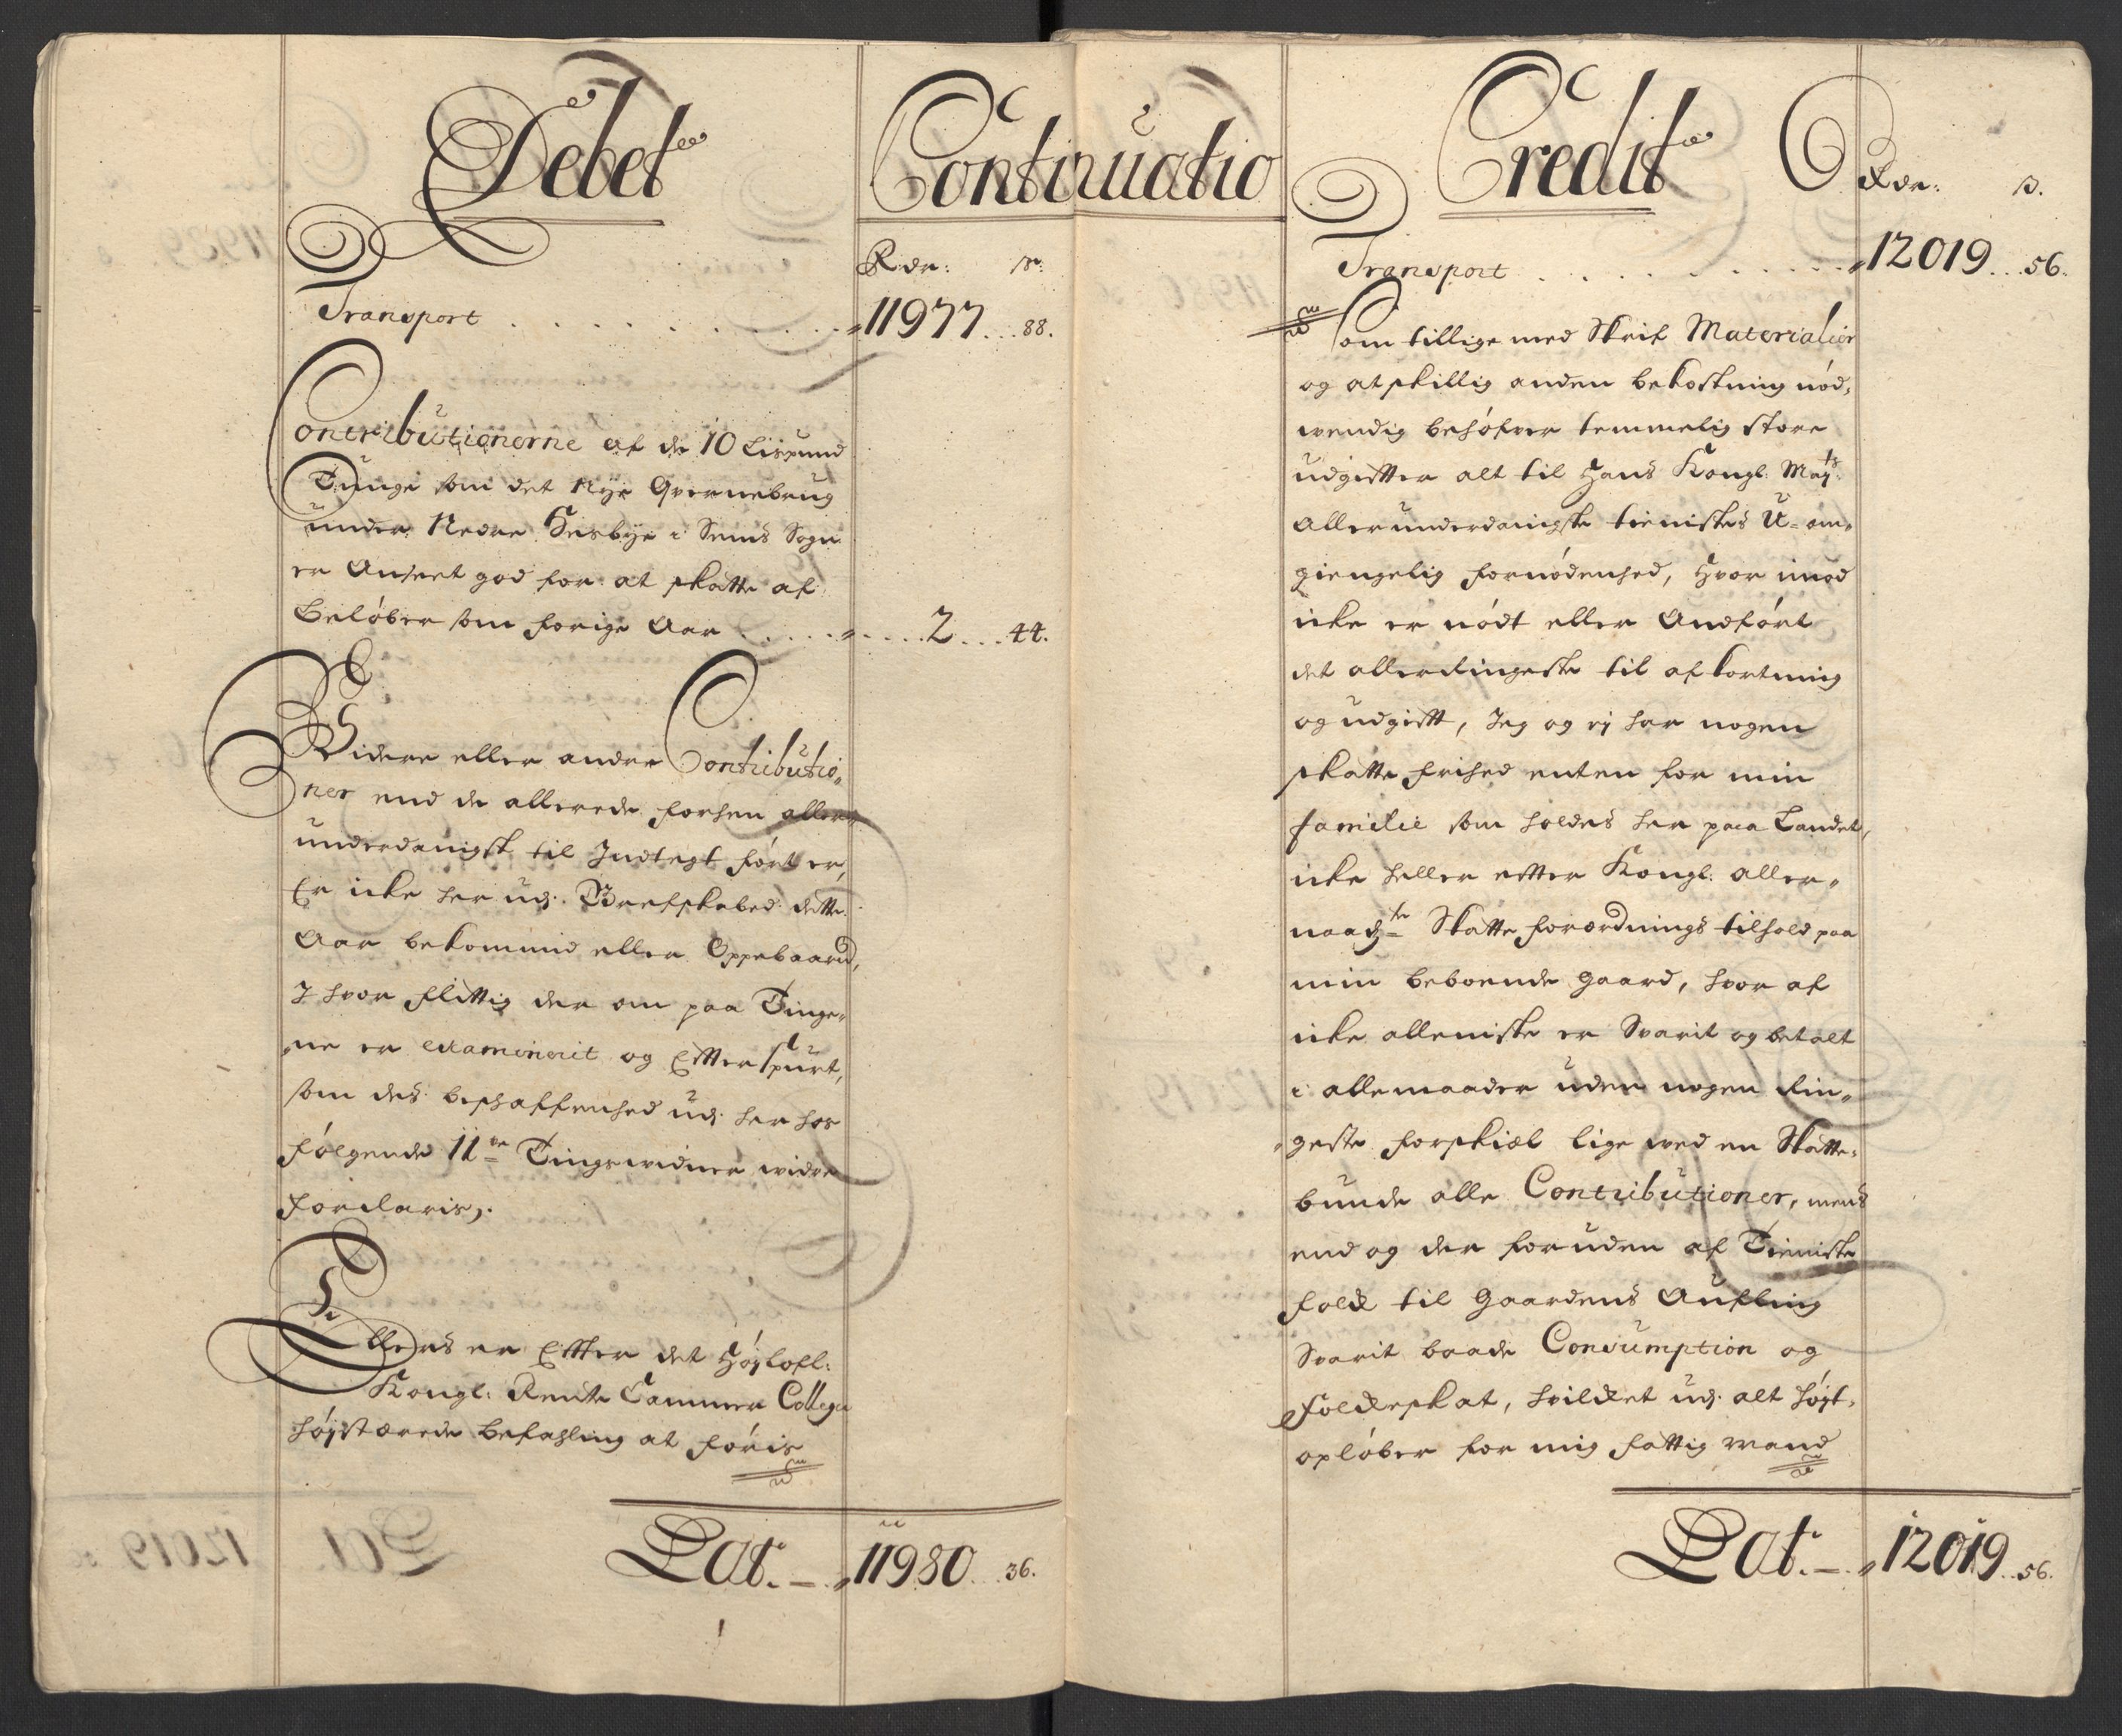 Debet
Continuatio
Rdr: ß:
Transport . . . . . . . . . . . 11977 . . 88.
Contributionerne af de 10 Lispund
Tunge som det Nye Qvernebrug
under Nedre Hesbye i Sems Sogn
er Anseet god for at skatte af
Beløber som forige Aar . . . . . . . . . 2 . . . 44.
Videre eller andre Contributio„
ner end de allerede forhen aller„
underdanigst til Indtegt ført er,
Er icke her udj Grefskabed dette
Aar bekommed eller Oppebaared,
I hvor flittig der om paa Tinge„
„ne er examinerit og Efterspurt,
som des beschaffenhed udj her hos
følgende 11de Tingsvidner widre
forclaris.
Ellers er Efter det Højlofl:
Kongl: Rente Cammer Collegii
højstærede befahling at føris
Lat. — „ 11980 . . 36.
Credit
Rdr: ß.
Transport . . . . . . . . . . „ 12019 . . 56.
Som tillige med Skrif Materialier
og atskillig anden bekostning nød„
wendig behøfver temmelig store
udgifter alt til Hans Kongl: Mayts
Allerunderdanigste tienistes U-om„
giengelig fornødenhed, Hvor imod
icke er nødt eller Andført
det allerringeste til afkortning
og udgift, Jeg og ej har nogen
skatte frihed enten for min
familie som holdes her paa Landet,
icke heller efter Kongl: aller„
naadste Skatte forordnings tilhold paa
min beboende gaard, hvor af
icke alleniste er Svarit og betalt
i alle maader uden nogen Rin„
„geste forskiæl lige wed en Skatte„
bunde alle Contributioner, mens
end og der foruden af Tieniste
folck til Gaardens Aufling
Svarit baade Consumption og
folckeskat, hvilcket udj alt højt„
opløber for mig fattig mand
Lat. — „ 12019 . . 56.